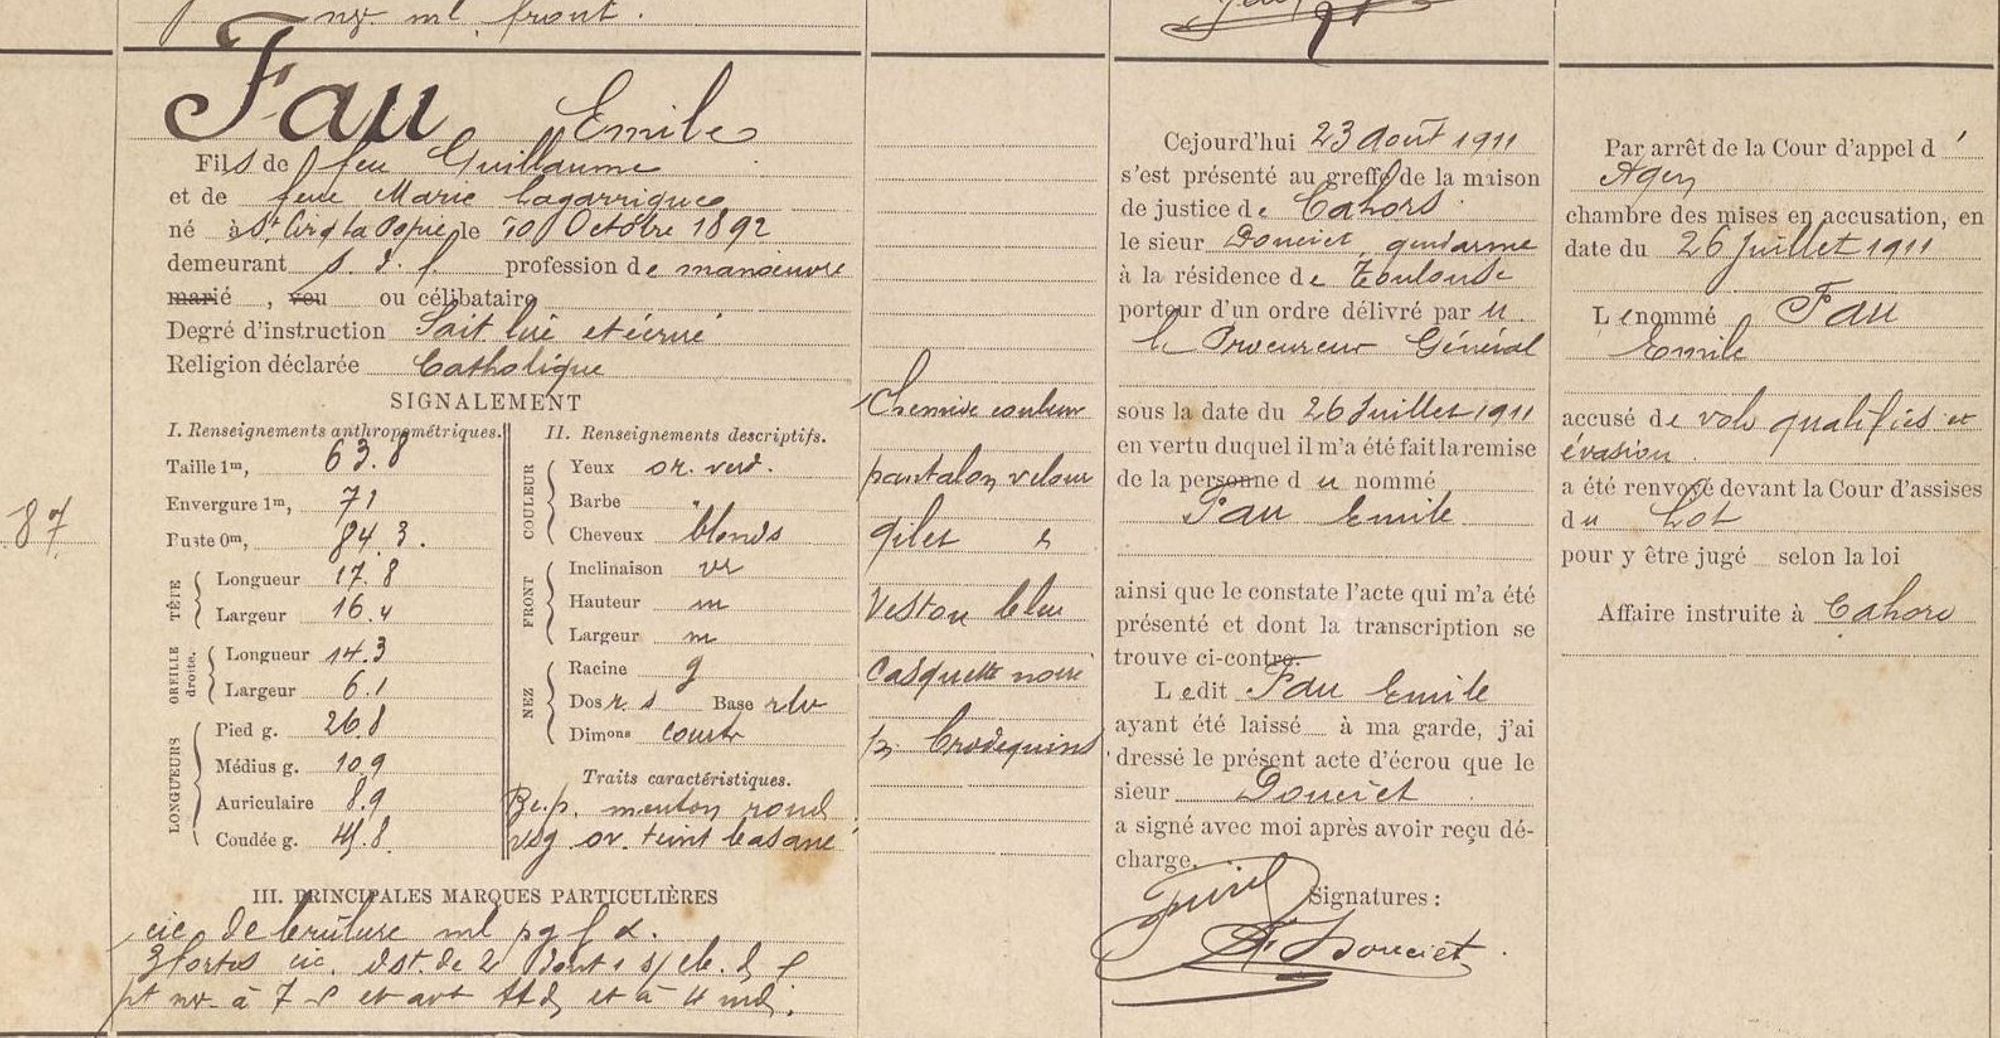 nv. ml front.
87
Fau Emile
Fils de feu Guillaume
et de feue Marie Lagarrigue
né à St Cirq la Popie le 10 Octobre 1892
demeurant s. d. f. profession de manœuvre
marié , veu ou célibataire
Degré d'instruction Sait lire et écrire
Religion déclarée Catholique
SIGNALEMENT
I. Renseignements anthropométriques.
Taille 1m, 63.8
Envergure 1m, 71
Buste 0m, 84.3.
TÊTE
Longueur 17.8
Largeur 16.4
OREILLE droite.
Longueur 14.3
Largeur 6.1
LONGUEURS
Pied g. 26.8
Médius g. 10.9
Auriculaire 8.9
Coudée g. 45.8
II. Renseignements descriptifs.
COULEUR
Yeux or. verd.
Barbe "
Cheveux blonds
FRONT
Inclinaison vr
Hauteur m
Largeur m
NEZ
Racine g
Dos r. s Base rlv
Dimons courte
Traits caractéristiques.
menton rond
vsg ov. teint basané
III. PRINCIPALES MARQUES PARTICULIÈRES
cic de brûlure ml pg f d.
3 fortes cic. dst. de 2 dont 1 s/
pt nv. à 7 et avt et à 4 md.
Chemise couleur
pantalon velour
gilet
Veston bleu
Casquette noire
p. Brodequins
Cejourd'hui 23 Août 1911
s'est présenté au greffe de la maison
de justice de Cahors
le sieur Douciet gendarme
à la résidence de Toulouse
porteur d'un ordre délivré par M.
le Procureur Général
sous la date du 26 Juillet 1911
en vertu duquel il m'a été fait la remise
de la personne du nommé
Fau Emile
ainsi que le constate l'acte qui m'a été
présenté et dont la transcription se
trouve ci-contre.
Ledit Fau Emile
ayant été laissé à ma garde, j'ai
dressé le présent acte d'écrou que le
sieur Douciet
a signé avec moi après avoir reçu dé-
charge.
Signatures :
Douciet
Par arrêt de la Cour d'appel d'
Agen
chambre des mises en accusation, en
date du 26 Juillet 1911
Le nommé Fau
Emile
accusé de vols qualifiés et
évasion.
a été renvoyé devant la Cour d'assises
du Lot
pour y être jugé selon la loi
Affaire instruite à Cahors